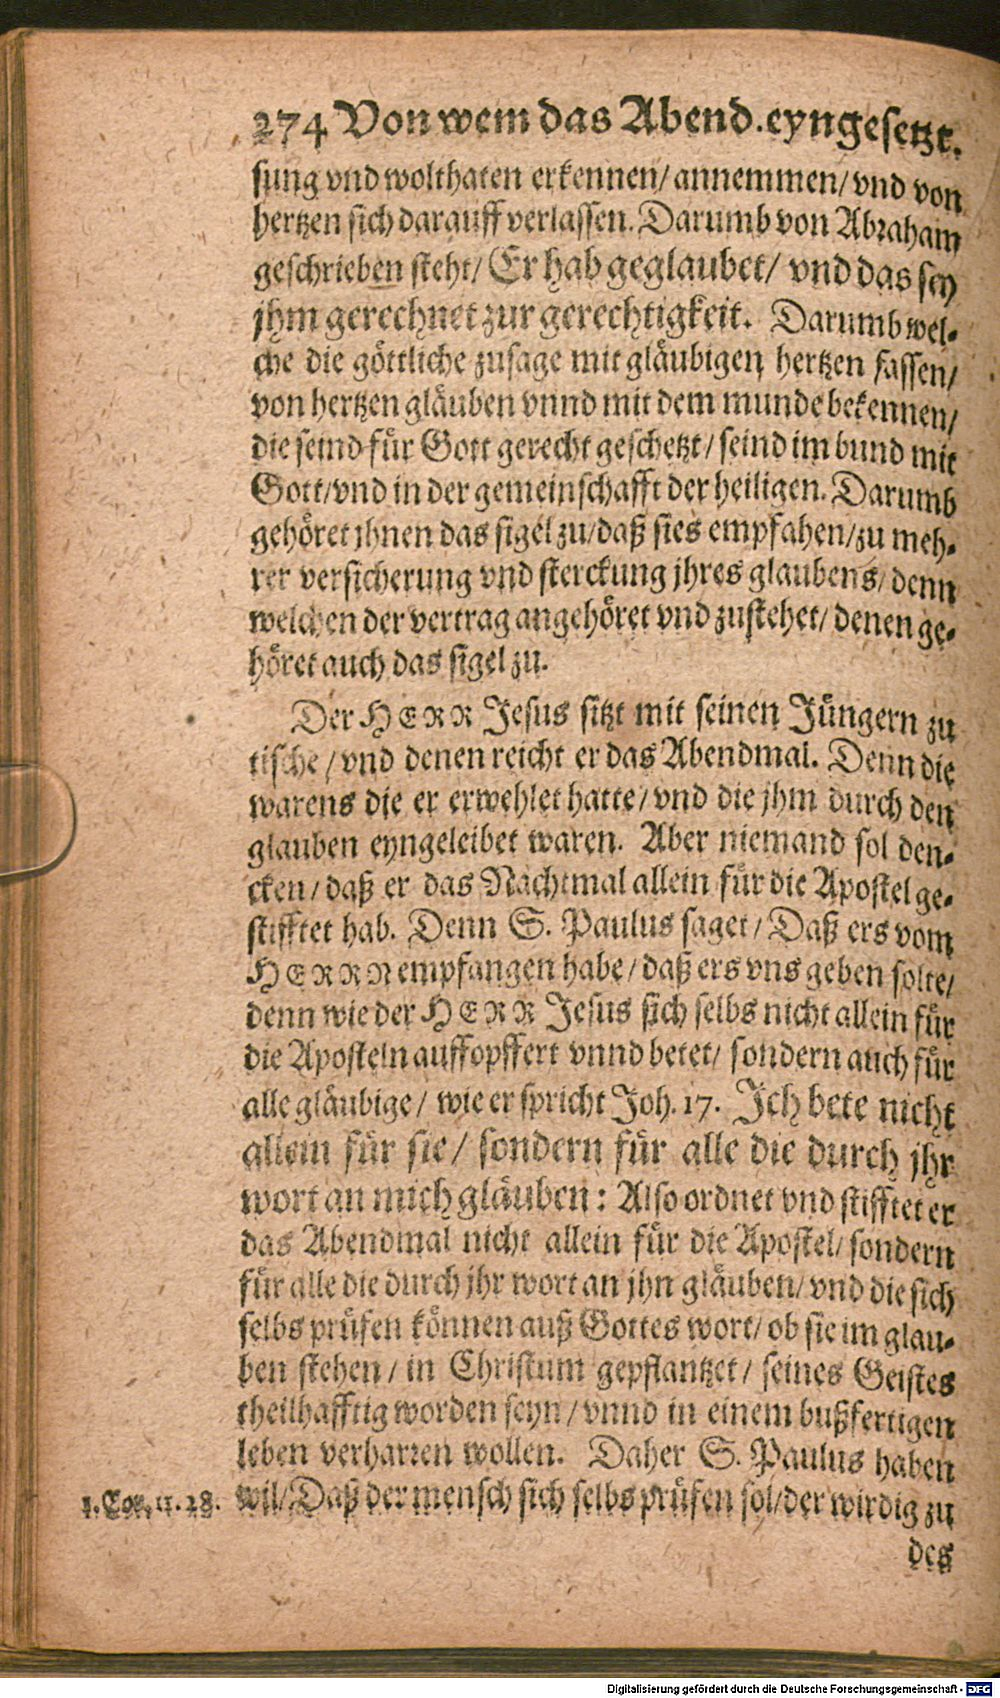 274 Von wem das Abend. eyngesetzt.
sung vnd wolthaten erkennen/ annemmen/ vnd von
hertzen sich darauff verlassen. Darumb von Abraham
geschrieben steht/ Er hab geglaubet/ vnd das sey
jhm gerechnet zur gerechtigkeit. Darumb wel-
che die göttliche zusage mit gläubigen hertzen fassen/
von hertzen gläuben vnnd mit dem munde bekennen/
die seind für Gott gerecht geschetzt/ seind im bund mit
Gott/ vnd in der gemeinschafft der heiligen. Darumb
gehöret jhnen das sigel zu/ daß sies empfahen/ zu meh-
rer versicherung vnd sterckung jhres glaubens/ denn
welchen der vertrag angehöret vnd zustehet/ denen ge-
höret auch das sigel zu.
Der HERR Jesus sitzt mit seinen Jüngern zu
tische/ vnd denen reicht er das Abendmal. Denn die
warens die er erwehlet hatte/ vnd die jhm durch den
glauben eyngeleibet waren. Aber niemand sol den-
cken/ daß er das Nachtmal allein für die Apostel ge-
stifftet hab. Denn S. Paulus saget/ Daß ers vom
HERRN empfangen habe/ daß ers vns geben solte/
denn wie der HERR Jesus sich selbs nicht allein für
die Aposteln auffopffert vnnd betet/ sondern auch für
alle gläubige/ wie er spricht Joh. 17. Ich bete nicht
allein für sie/ sondern für alle die durch jhr
wort an mich gläuben: Also ordnet vnd stifftet er
das Abendmal nicht allein für die Apostel/ sondern
für alle die durch jhr wort an jhn gläuben/ vnd die sich
selbs prüfen können auß Gottes wort/ ob sie im glau-
ben stehen/ in Christum gepflantzet/ seines Geistes
theilhafftig worden seyn/ vnnd in einem bußfertigen
leben verharren wollen. Daher S. Paulus haben
1. Cor. 11. 28. wil/ Daß der mensch sich selbs prüfen sol/ der wirdig zu
des
Digitalisierung gefördert durch die Deutsche Forschungsgemeinschaft - DFG